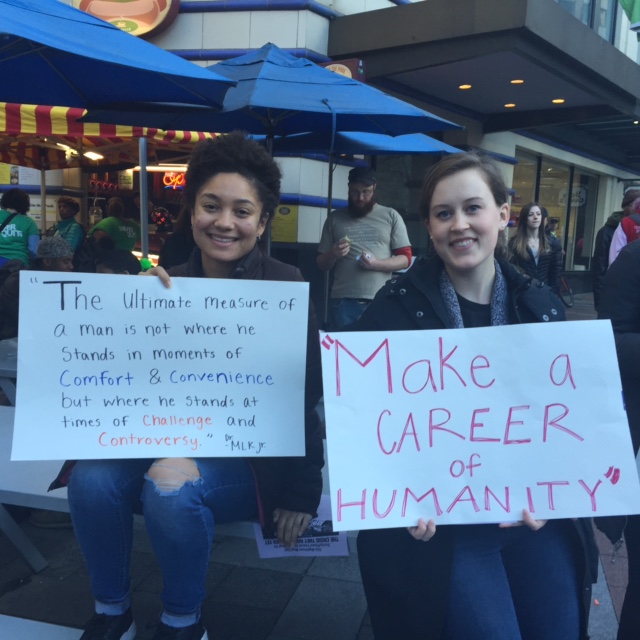 "The Ultimate measure of
a man is not where he
Stands in moments of
Comfort & Convenience
but where he stands at
times of Challenge and
Controversy." Dr MLK Jr
"Make a
CAREER
of
HUMANITY"